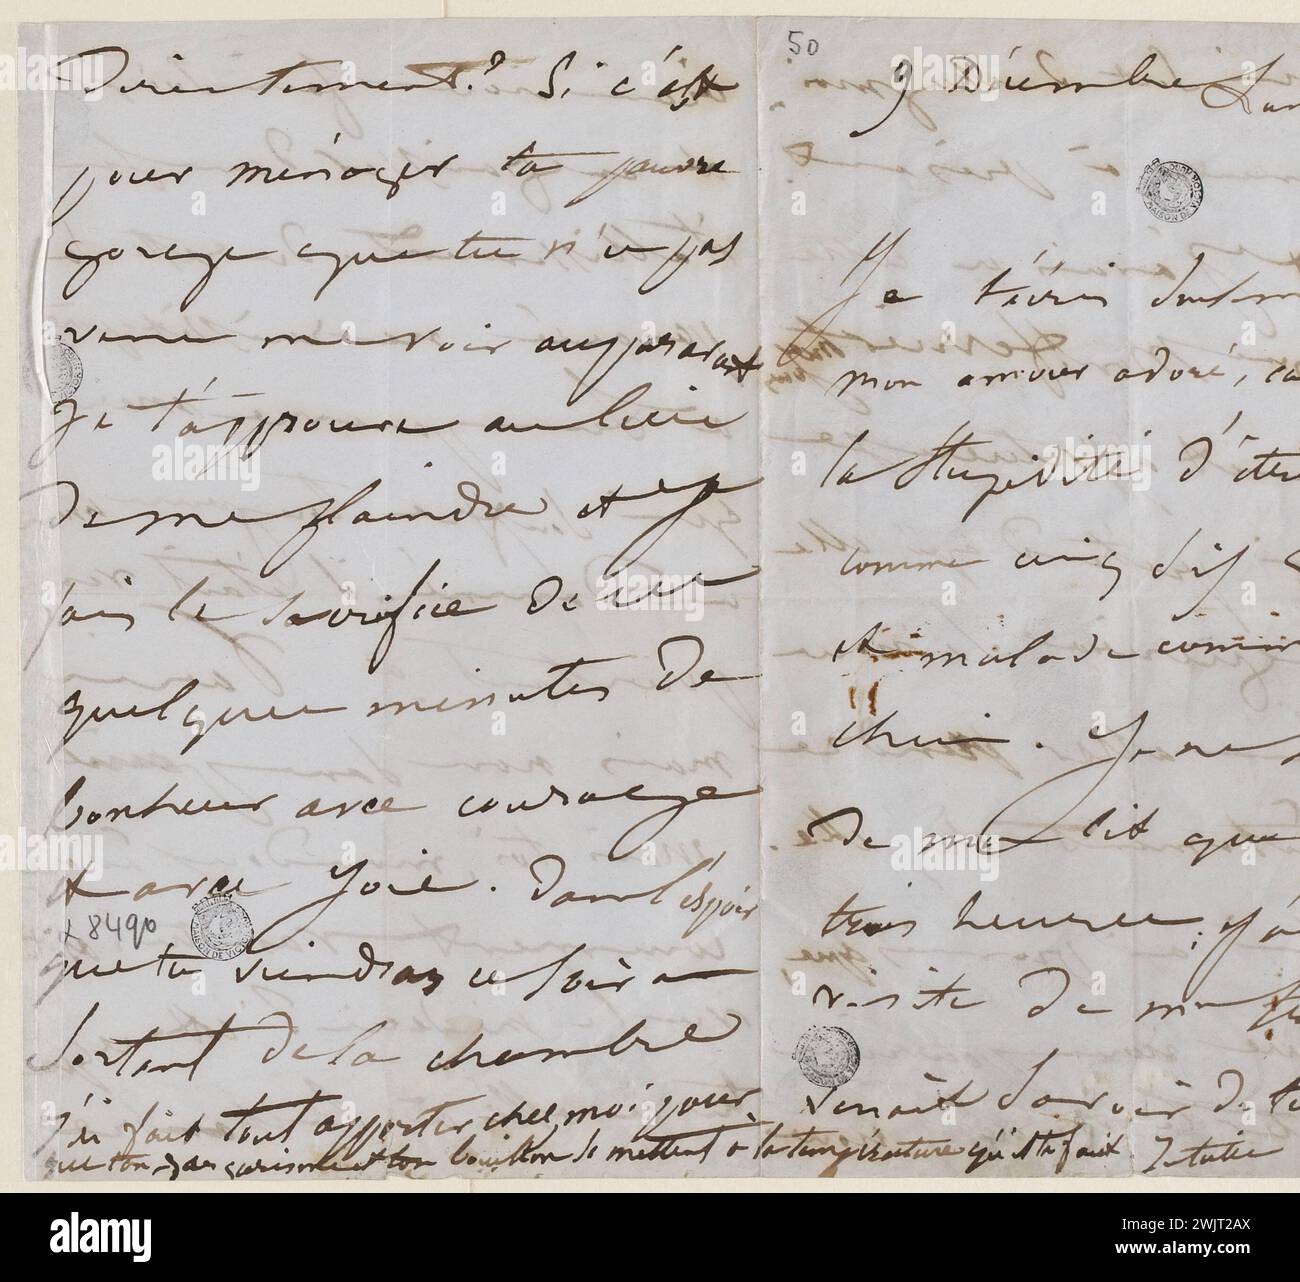 directement ? Si c'est
pour ménager ta pauvre
gorge que tu n'es pas
venu me voir auparavant
je t'approuve au lieu
de me plaindre et je
fais le sacrifice de
quelques minutes de
bonheur avec courage
et avec joie. Dans l'espoir
que tu viendras ce soir en
sortant de la chambre
j'ai fait tout apporter chez moi pour
que ton gargarisme et ton bouillon se mettent à la température qu'il te faut.
α 8490
50
9 Décembre
Je t'écris
mon amour adoré,
la stupidité d'être
comme cinq dix
et malade comme
chien. Je ne
de mon lit que
trois heures; j'ai
visite de
venait savoir de
MAISON DE VICTOR
alamy
alamy
Image ID: 2WJT2AX
www.alamy.com